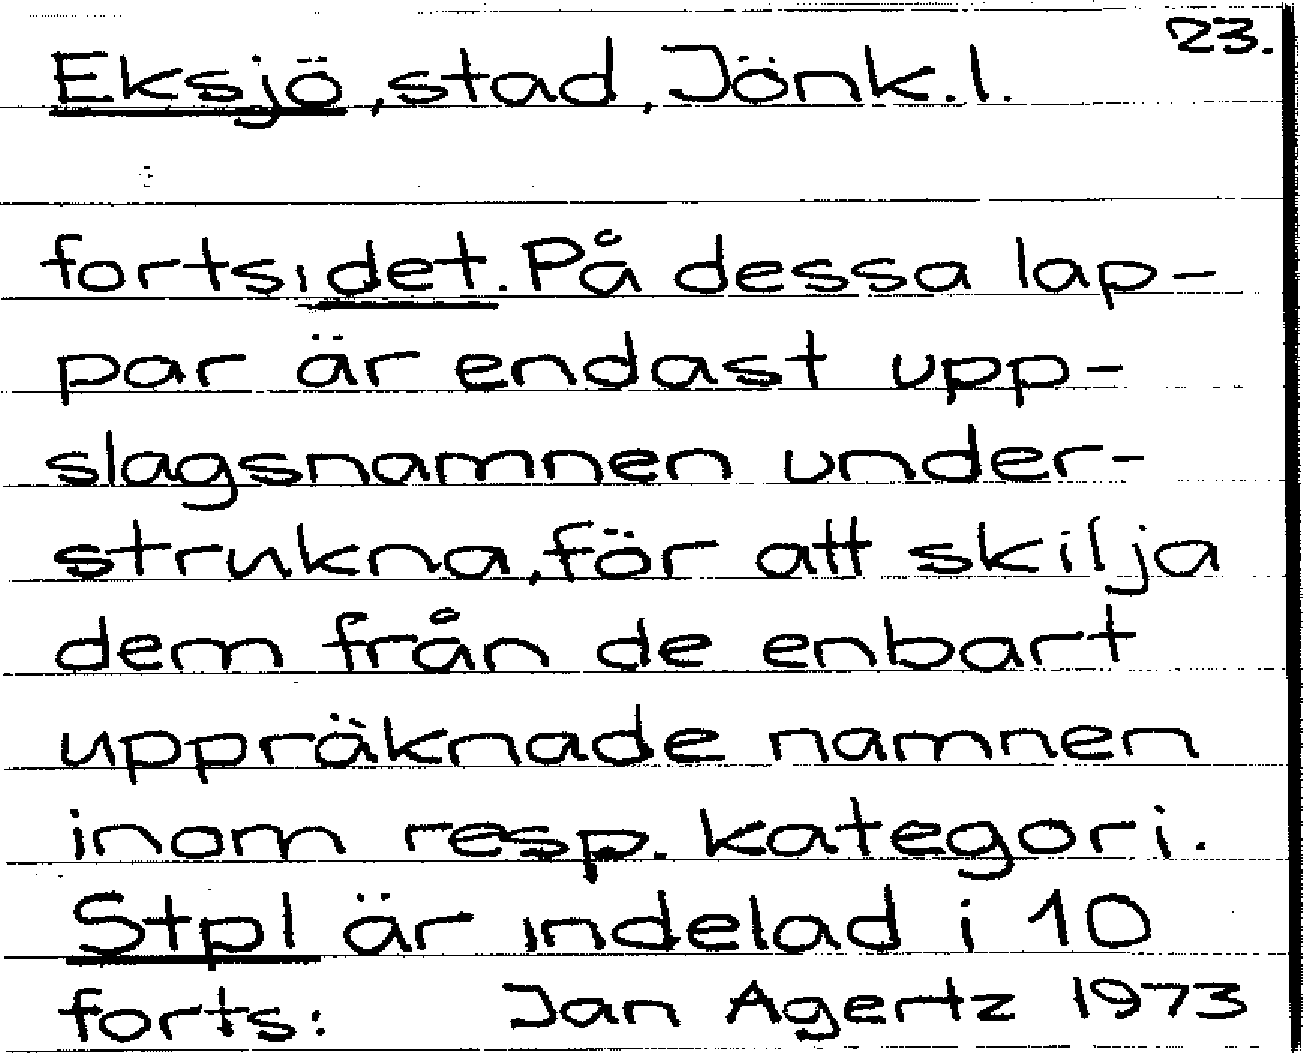 23.
Eksjö, stad, Jönk.l.
forts, det. På dessa lap-
par är endast upp-
slagsnamnen under-
strukna, för att skilja
dem från de enbart
uppräknade namnen
inom resp. kategori.
Stpl är indelad i 10
forts: Jan Agertz 1973